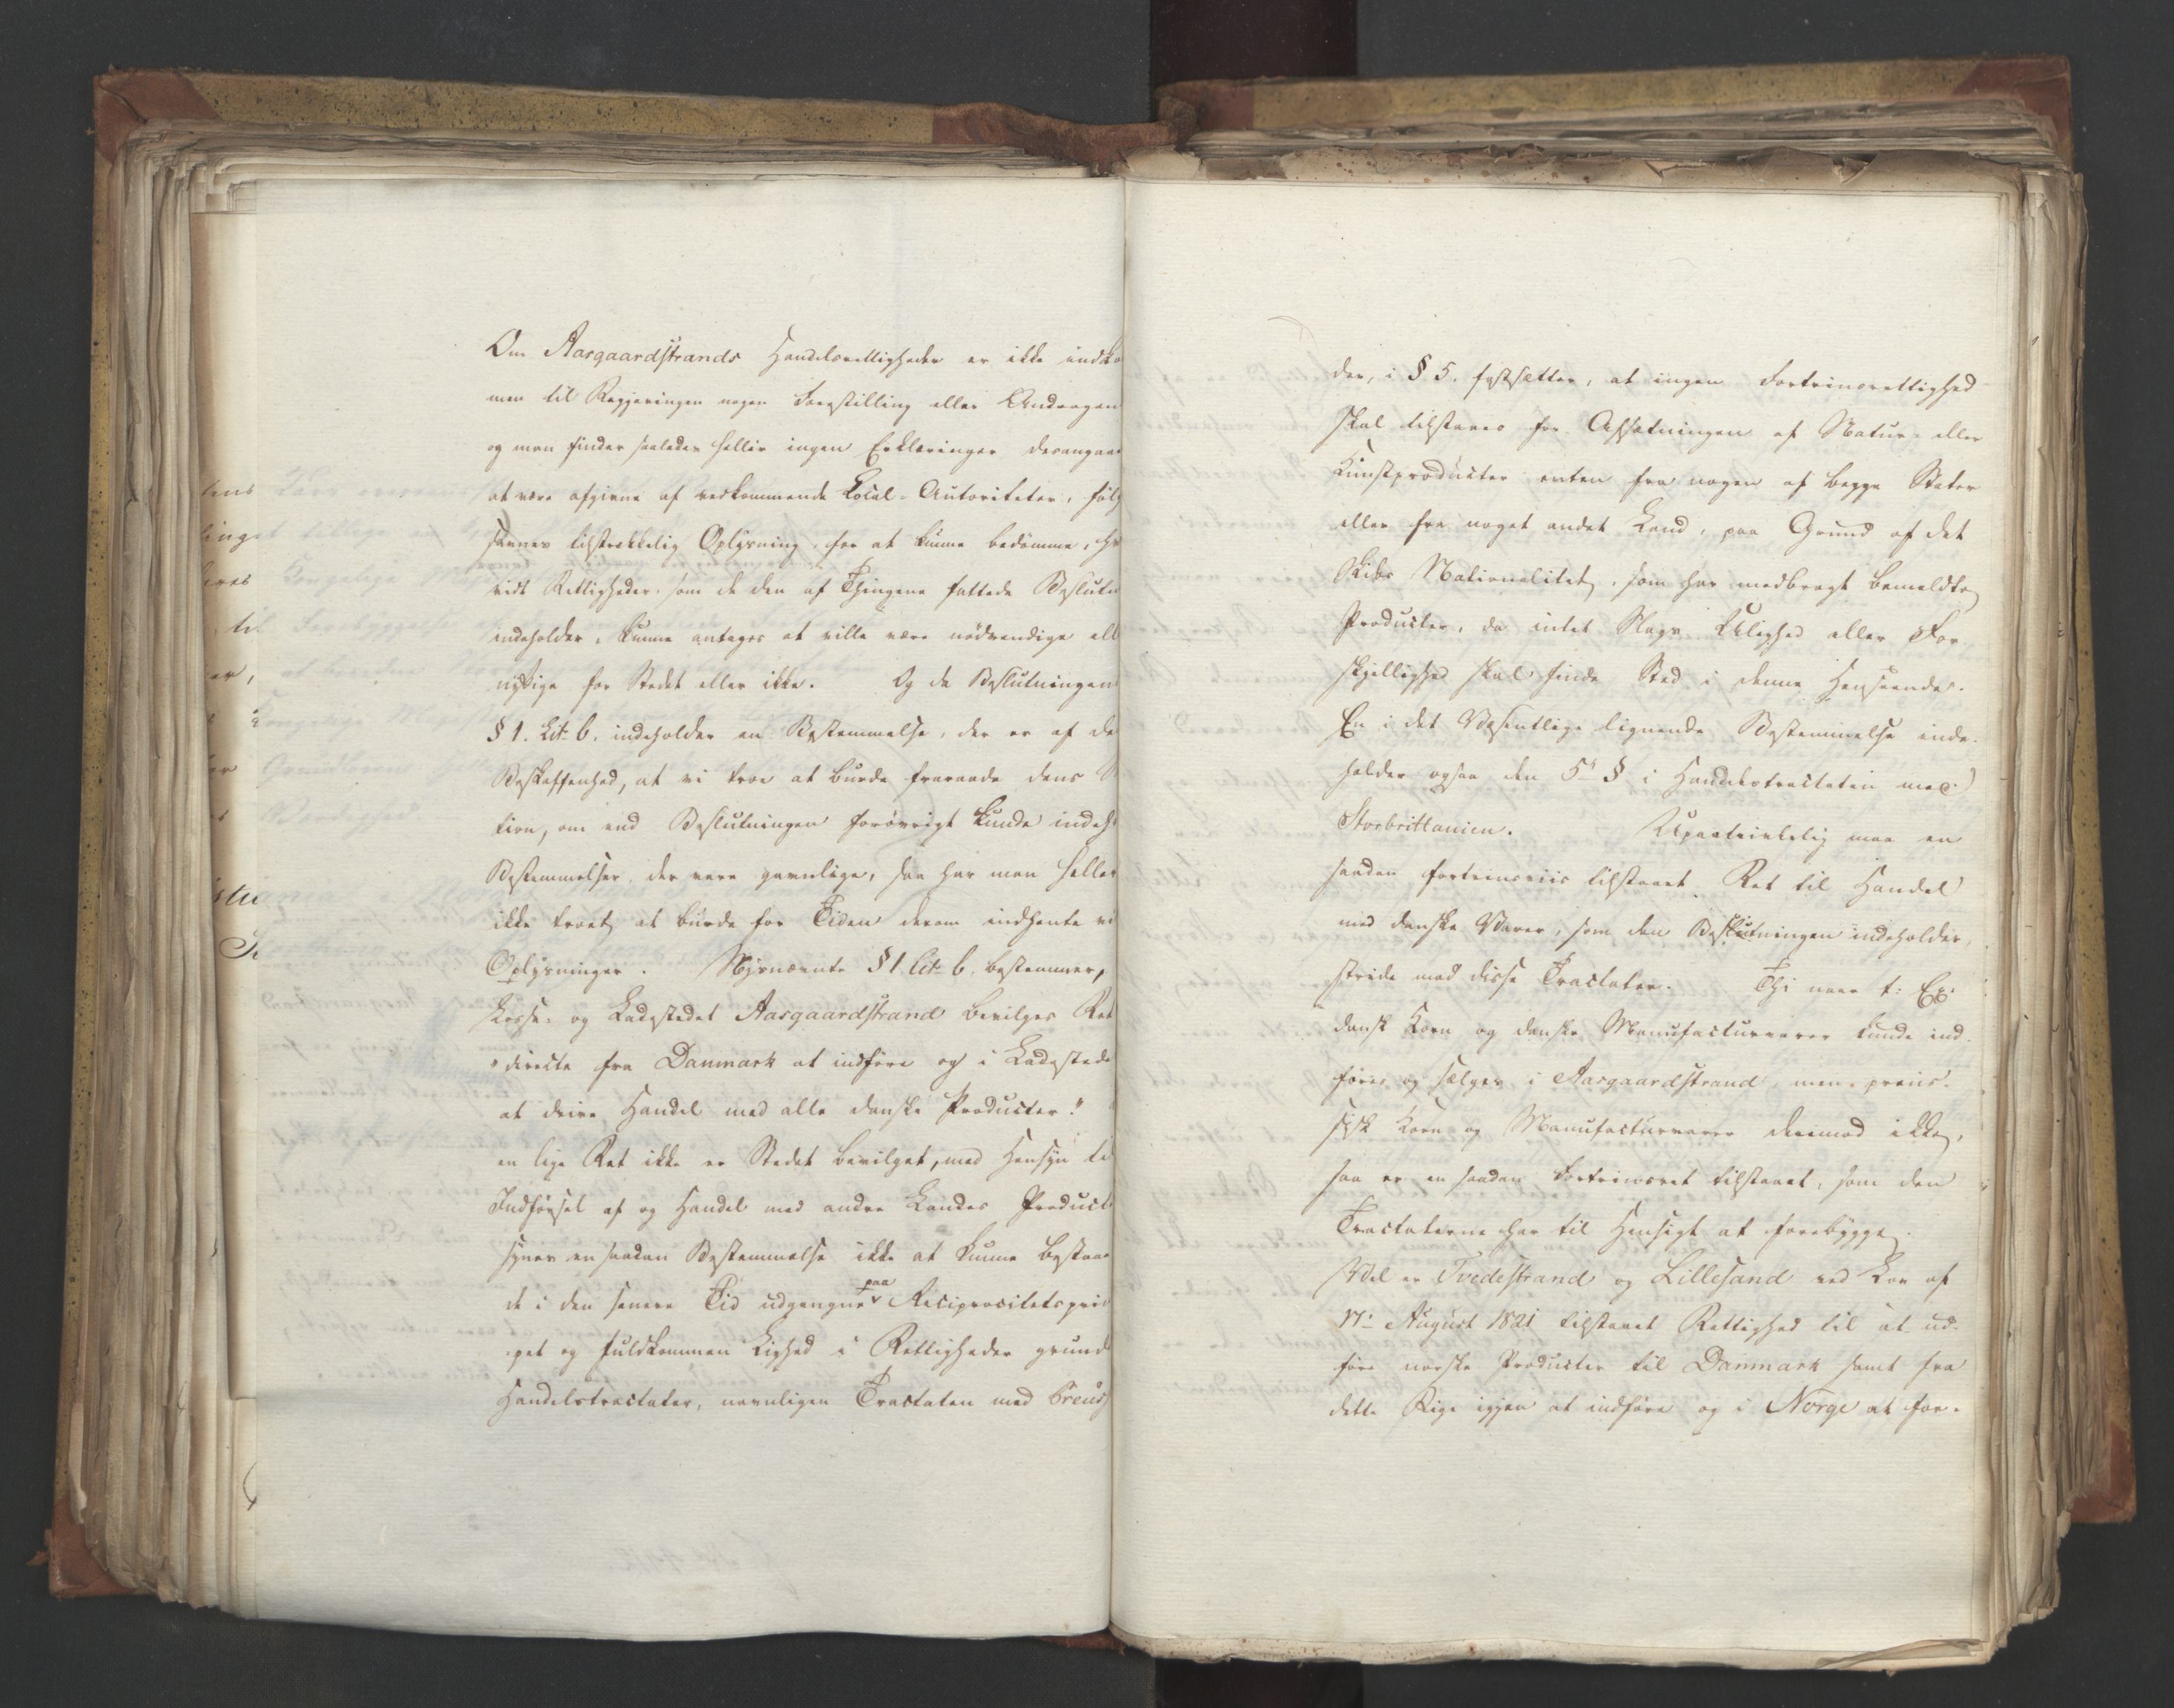 Om Aasgaardstrands Handelsrettigheder er ikke indko
men til Regjeringen nogen Forestilling eller Andragen
og man finder saaledes heller ingen Erklæringer desangaae
at være afgivne af vedkommende Local-Autoriteter, føl
savnes tilstrækkelig Oplysning, for at kunne bedømme, hv
vidt Rettigheder, som de den af Thingene fattede Beslutn
indeholder, kunne antages at ville være nødvendige ell
nyttige for Stedet eller ikke. Og da Beslutningens
§ 1. Lit. b. indeholder en Bestemmelse, der er af de
Beskaffenhed, at vi troe at burde fraraade dens S
tion, om end Beslutningen forøvrigt kunde indeh
Bestemmelser, der vare gavnlige, saa har man heller
ikke troet at burde for Tiden derom indhente vi
Oplysninger. Nysnævnte § 1. Lit. b. bestemmer,
Losse- og Ladestedet Aasgaardstrand bevilges Ret
"directe fra Danmark at indføre og i Ladestede
at drive Handel med alle danske Producter."
en lige Ret ikke er Stedet bevilget, med Hensyn til
Indførsel af og Handel med andre Landes Product
synes en saadan Bestemmelse ikke at kunne bestaae
de i den senere Tid udgangne paa Reciprocitetsprin
pet og fuldkommen Lighed i Rettigheder grund
Handelstractater, navnligen Tractaten med Preus
der, i § 5. fastsætter, at ingen Fortrinsrettighed
skal tilstaaes for Afsætningen af Natur- eller
Kunstproducter enten fra nogen af begge Stater
eller fra noget andet Land, paa Grund af det
Skibs Nationalitet, som har medbragt bemeldte
Producter, da intet Slags Ulighed eller For
skjellighed skal finde Sted i denne Henseende.
En i det Væsentlige lignende Bestemmelse inde-
holder ogsaa den 5te § i Handelstractaten med
Storbrittanien. Upaatvivlelig maa en
saadan fortrinsviis tilstaaet Ret til Handel
med danske Varer, som den Beslutningen indeholder,
stride mod disse Tractater. Thi naar t: Ex:
dansk Korn og danske Manufacturvarer kunde ind
føres og sælges i Aasgaardstrand, men preus-
sisk Korn og Manufacturvarer derimod ikke,
saa er en saadan Fortrinsret tilstaaet, som den
Tractaterne har til Hensigt at forebygge.
Vel er Tvedestrand og Lillesand ved Lov af
17: August 1821 tilstaaet Rettighed til at ud-
føre norske Producter til Danmark samt fra
dette Rige igjen at indføre og i Norge at for-